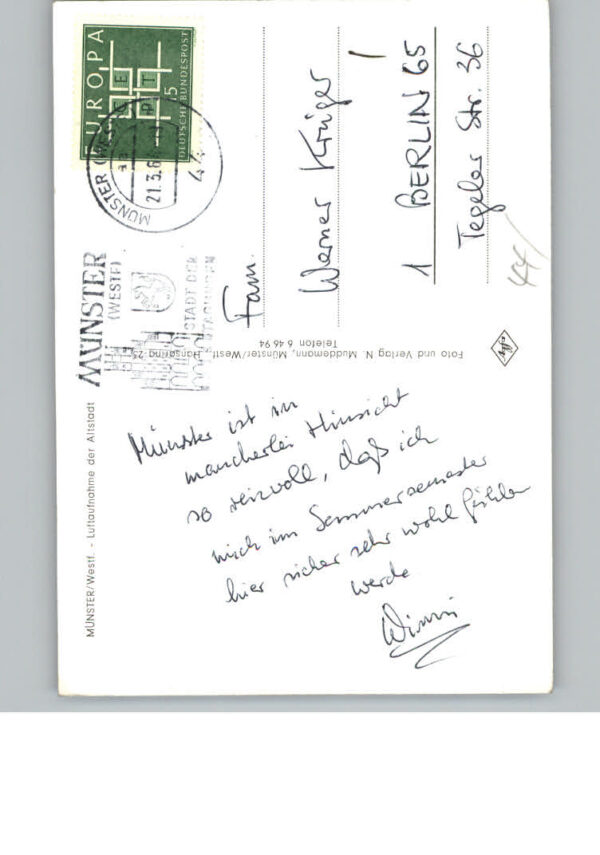 MÜNSTER/Westf. - Luftaufnahme der Altstadt
Münster ist in
mancherlei Hinsicht
so reizvoll, daß ich
mich im Sommersemester
hier sicher sehr wohl fühlen
werde
Foto und Verlag N. Muddemann, Münster/Westf., Hansaring 25
Telefon 6 46 94
MÜNSTER
(WESTF)
STADT DER
TAGUNGEN
MÜNSTER (WESTF)
21.3.6
44
EUROPA
CEPT
15
DEUTSCHE BUNDESPOST
Fam.
Werner Krüger
1 BERLIN 65
Tegeler Str. 36
44